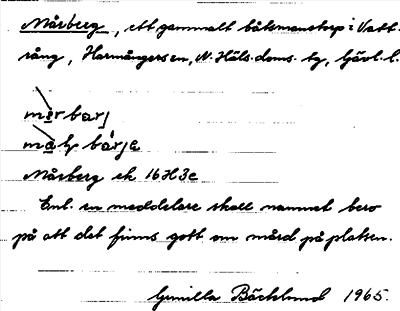 Mårberg, ett gammalt båtsmanstorp i Vatt-
rång, Harmångers sn, N. Häls. doms. tg, Gävl. l.
Mårberg ek 16H3e
Enl. en meddelare skall namnet bero
på att det finns gott om mård på platsen.
Gunilla Bäcklund 1965.